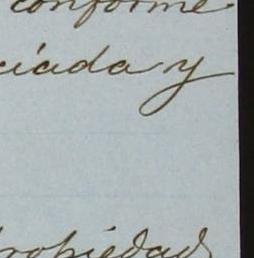 conforme
ciada y
propiedad